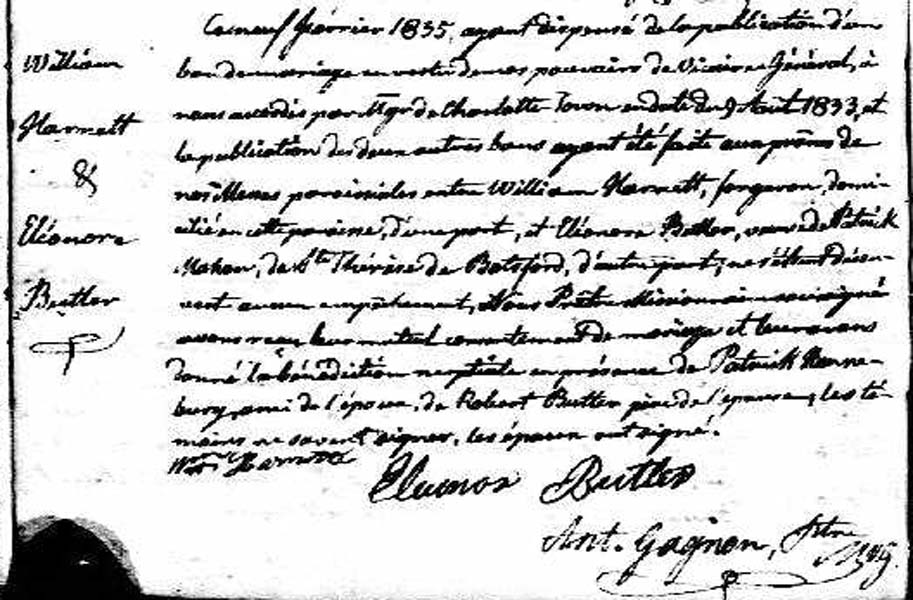 William
Harnett
&
Eléonore
Butler
Ce neuf février 1835, ayant dispensé de la publication d'un
ban de mariage en vertu de mes pouvoirs de Vicaire Général, à
nous accordés par Mgr de Charlotte Town en date du 9 Août 1833, et
la publication des deux autres bans ayant été faite aux prônes de
nos Messes paroissiales entre William Harnett, forgeron, domi-
cilié en cette paroisse, d'une part, et Eléonore Butler, veuve de Patrick
Mahan, de Ste Thérèse de Botsford, d'autre part; ne s'étant décou-
vert aucun empêchement, Nous Prêtre Missionnaire soussigné
avons reçu leur mutuel consentement de mariage et leur avons
donné la bénédiction nuptiale en présence de Patrick Henne-
bury, ami de l'époux, de Robert Butler père de l'épouse; les té-
moins ne savent signer, les époux ont signé.
Wm Harnett
Eleanor Butler
Ant. Gagnon, Ptre
Miss.